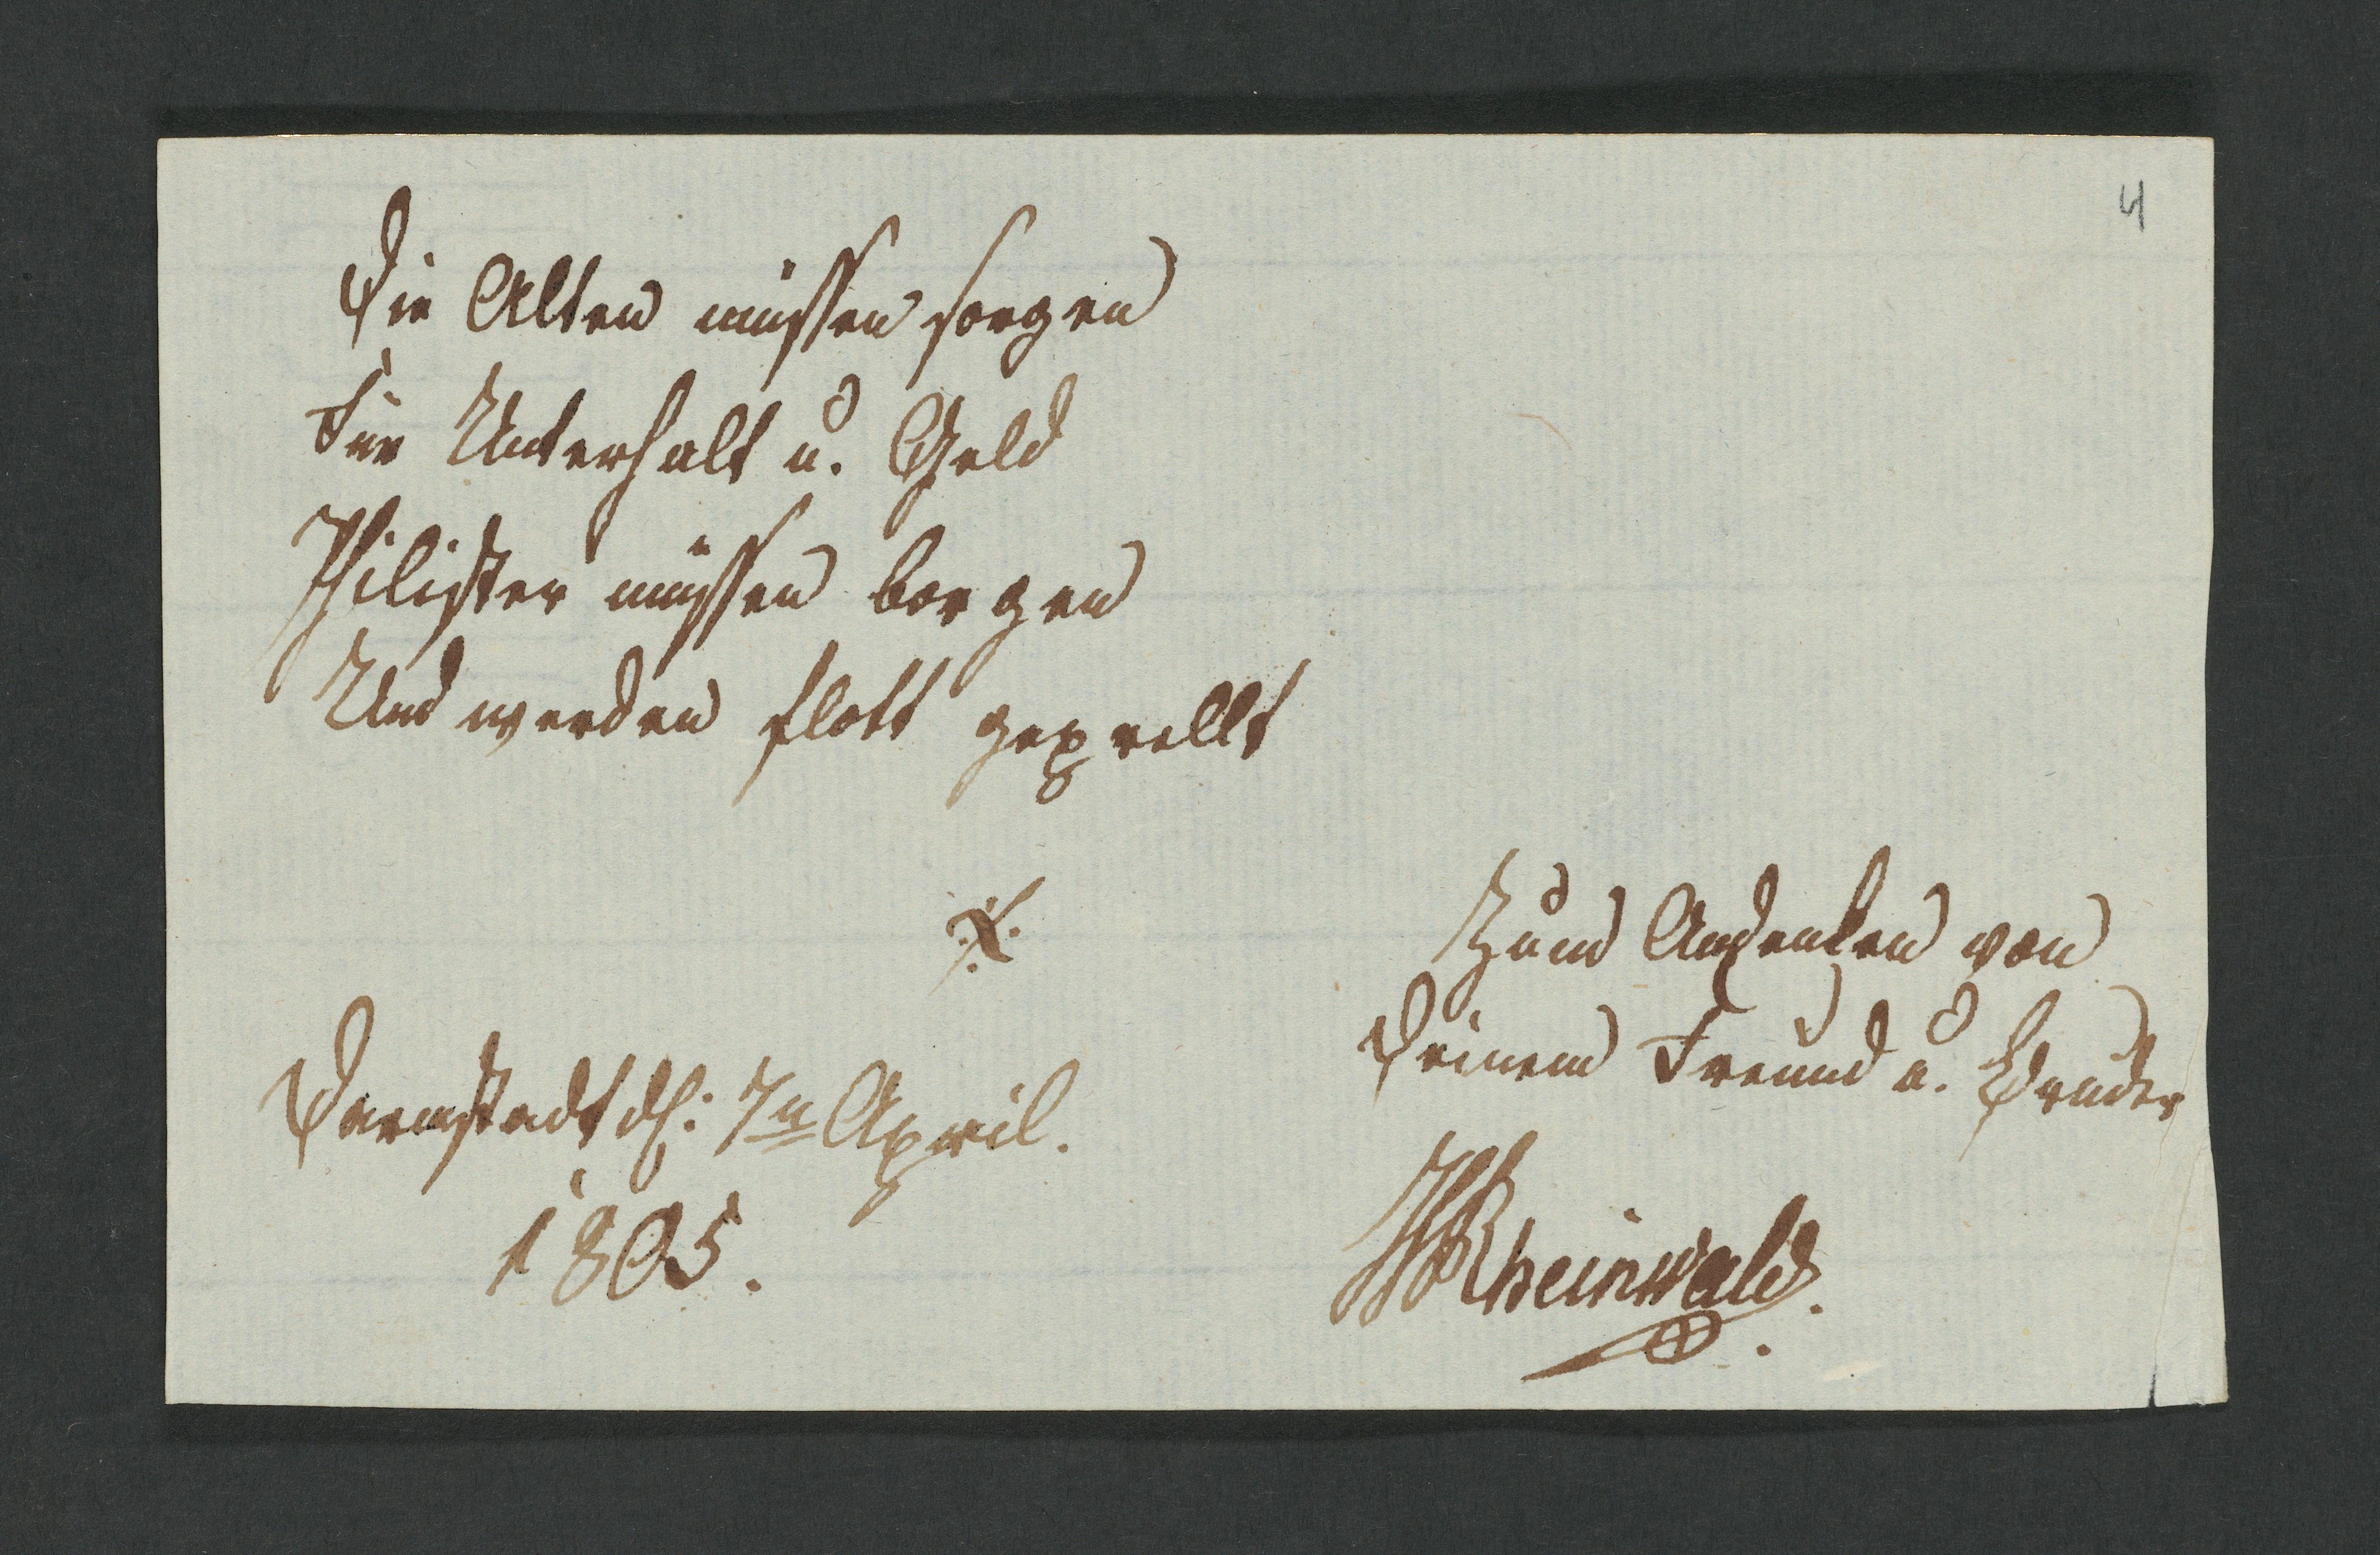 4
Die Alten müssen sorgen
Für Unterhalt u. Geld
Philister müssen borgen
Und werden flott geprellt
Zum Andenken von
Deinem Freund u. Bruder
Darmstadt d: 7n April.
1805.
Rheinwald.